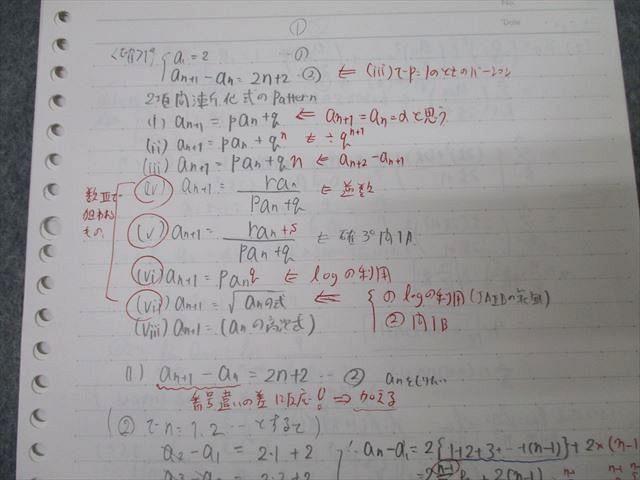 ①
No.
Date
a₁ = 2 …①
aₙ₊₁ - aₙ = 2n+2 …② ⇐ (iii)でp=1のときのバージョン
2項間漸化式のPattern
(i) aₙ₊₁ = paₙ+q ⇐ aₙ₊₁ = aₙ = αと思う
(ii) aₙ₊₁ = paₙ + qⁿ ⇐ ÷qⁿ⁺¹
(iii) aₙ₊₁ = paₙ+qn ⇐ aₙ₊₂ - aₙ₊₁
数Ⅲで
狙われる
もの
(iv) aₙ₊₁ = raₙ / paₙ+q ⇐ 逆数
(v) aₙ₊₁ = raₙ+s / paₙ+q ⇐ 確3° 問1A
(vi) aₙ₊₁ = paₙ^q ⇐ logの利用
(vii) aₙ₊₁ = √aₙの式 ⇐ ① logの利用
② 問1B
(viii) aₙ₊₁ = (aₙの高次式)
(1) aₙ₊₁ - aₙ = 2n+2 … ②
番号違いの差に反応! ⇒ 加える
(②でn=1,2…とすると)
a₂ - a₁ = 2・1+2
∴ aₙ - a₁ = 2{1+2+3+…+(n-1)}+2×(n-1)